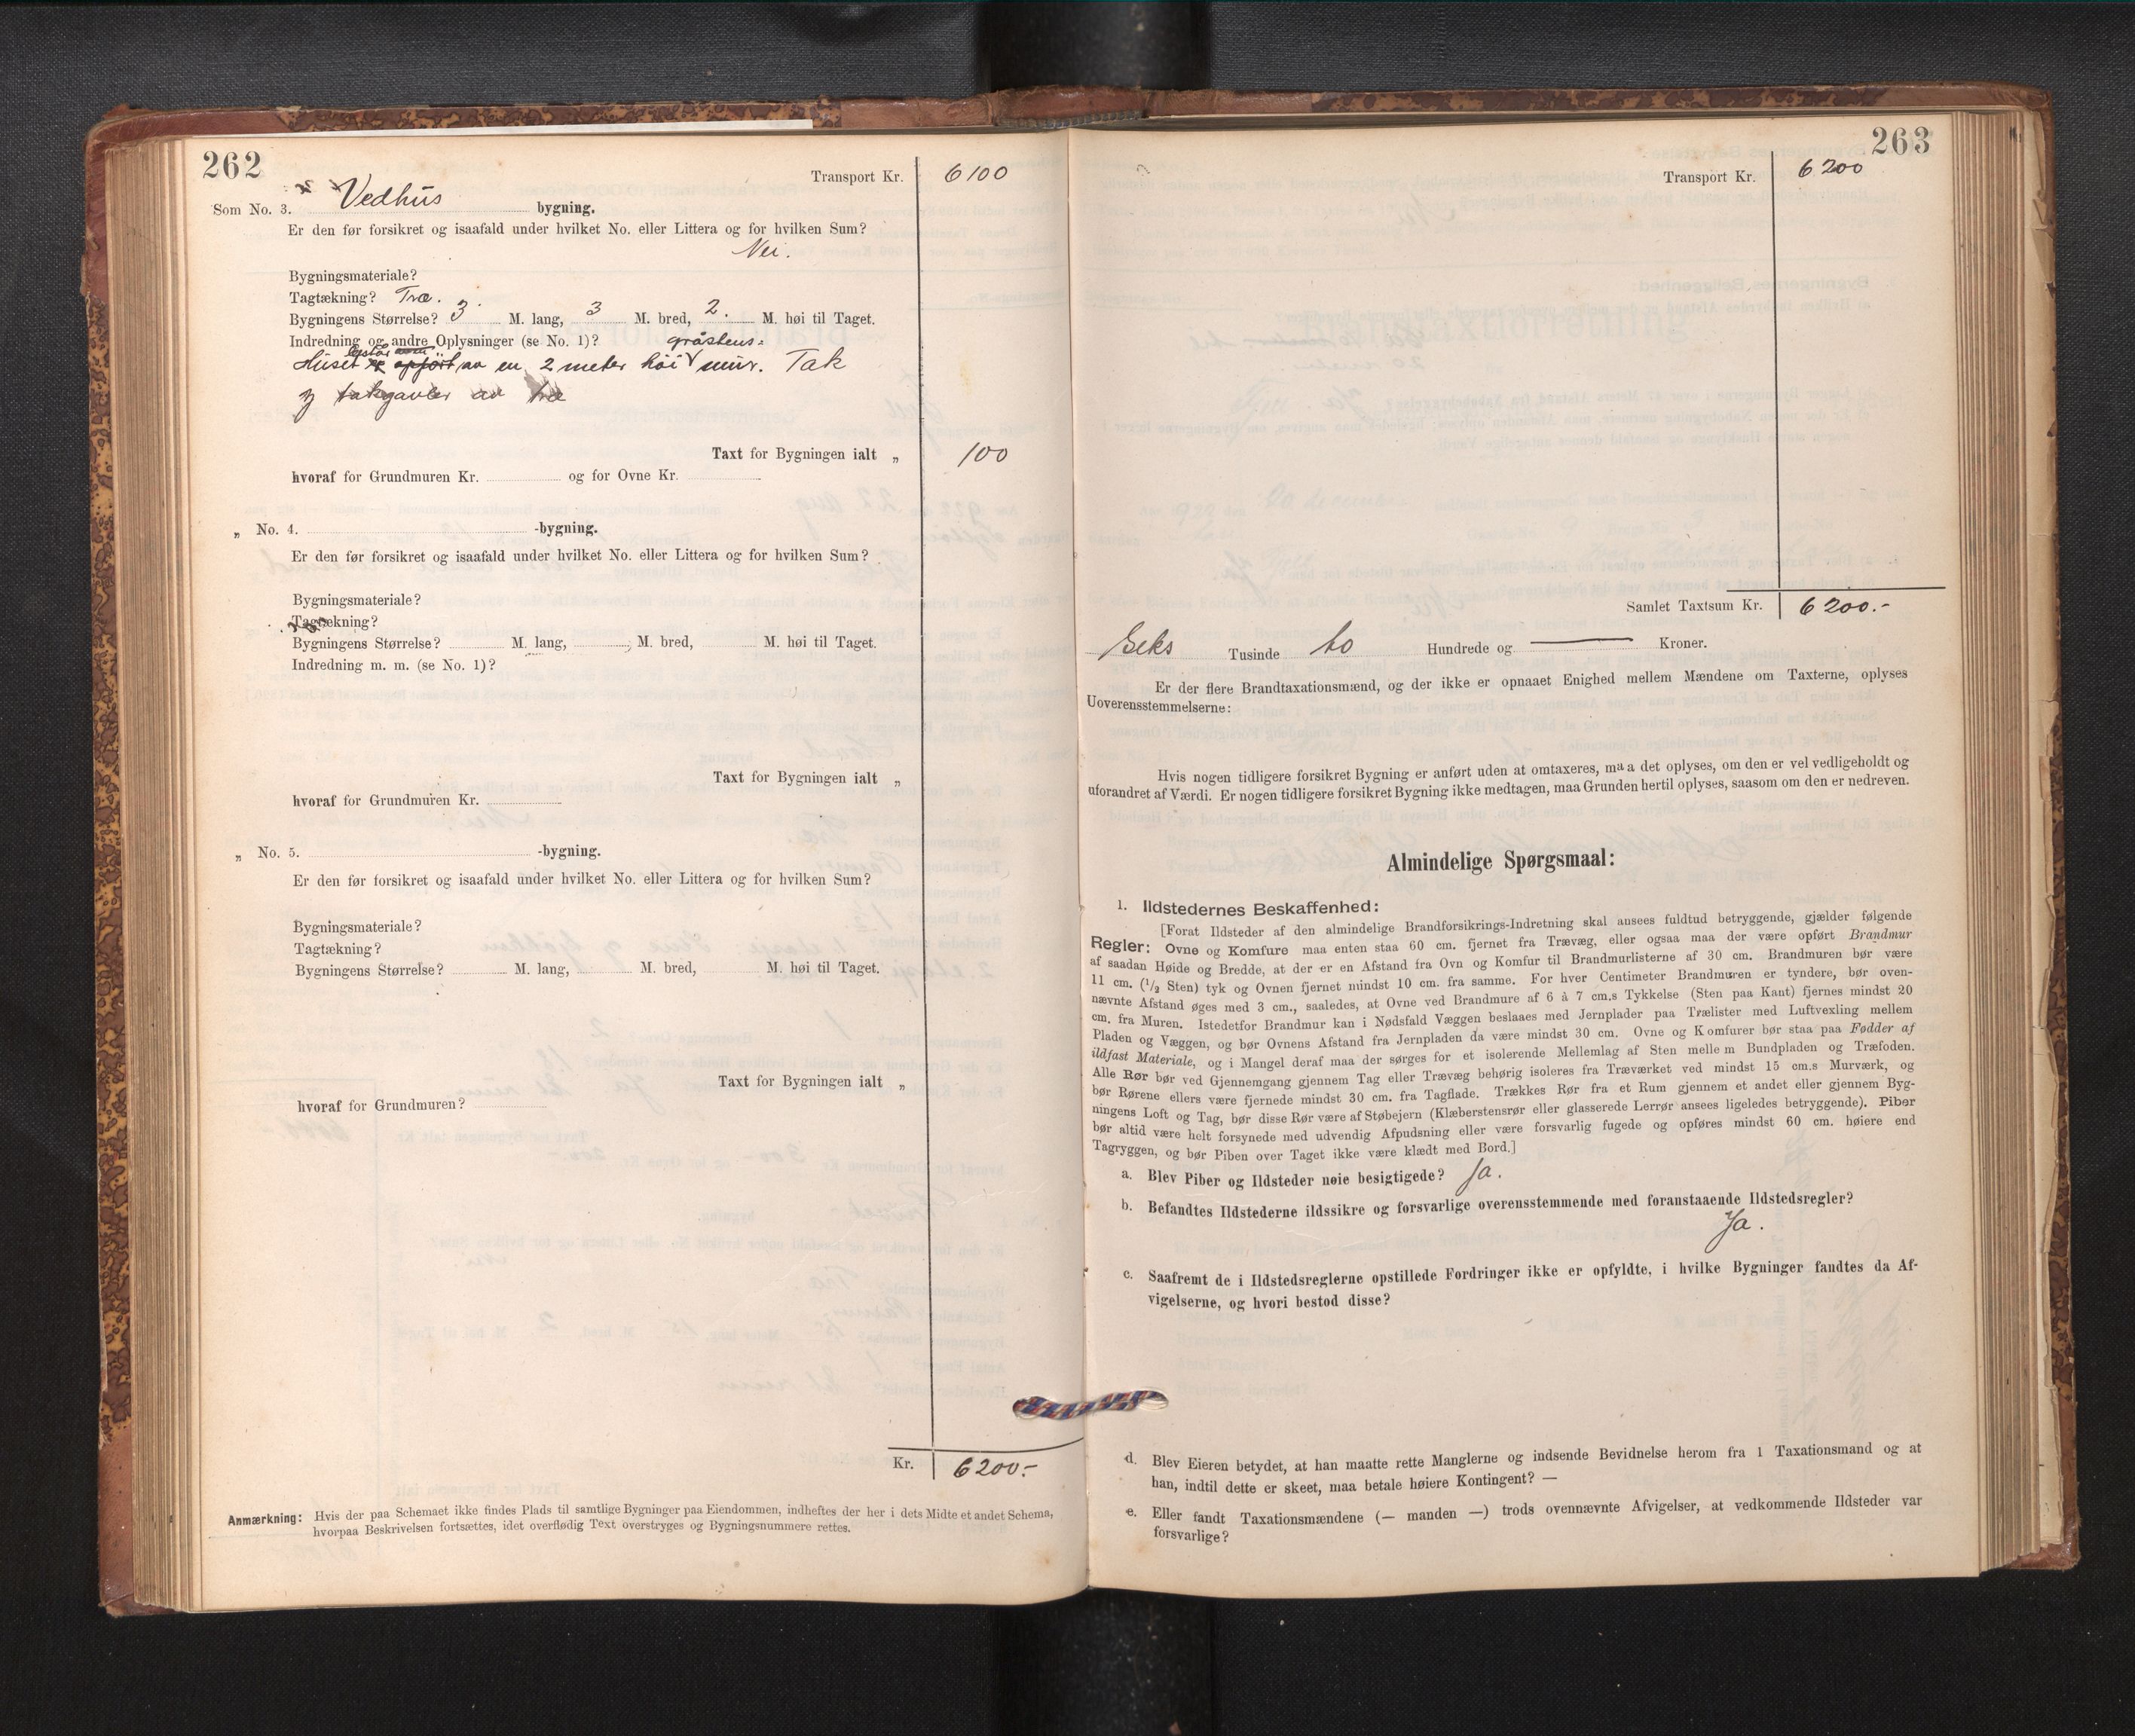 262
Transport Kr. 6100
Som No. 3. Vedhus bygning.
Er den før forsikret og isaafald under hvilket No. eller Littera og for hvilken Sum?
Nei.
Bygningsmateriale?
Tagtækning? Træ.
Bygningens Størrelse? 3 M. lang, 3 M. bred, 2. M. høi til Taget.
Indredning og andre Oplysninger (se No. 1)? gråstens-
Huset består opført av en 2 meter høi mur. Tak
og takgavler av træ
Taxt for Bygningen ialt „ 100
hvoraf for Grundmuren Kr. og for Ovne Kr.
„ No. 4. -bygning.
Er den før forsikret og isaafald under hvilket No. eller Littera og for hvilken Sum?
Bygningsmateriale?
Tagtækning?
Bygningens Størrelse? M. lang, M. bred, M. høi til Taget.
Indredning m. m. (se No. 1)?
Taxt for Bygningen ialt „
hvoraf for Grundmuren Kr.
„ No. 5. -bygning.
Er den før forsikret og isaafald under hvilket No. eller Littera og for hvilken Sum?
Bygningsmateriale?
Tagtækning?
Bygningens Størrelse? M. lang, M. bred, M. høi til Taget.
Taxt for Bygningen ialt „
hvoraf for Grundmuren?
Kr. 6200.-
Anmærkning: Hvis der paa Schemaet ikke findes Plads til samtlige Bygninger paa Eiendommen, indheftes der her i dets Midte et andet Schema,
hvorpaa Beskrivelsen fortsættes, idet overflødig Text overstryges og Bygningsnummere rettes.
263
Transport Kr. 6200
Samlet Taxtsum Kr. 6200.-
Seks Tusinde to Hundrede og — Kroner.
Er der flere Brandtaxationsmænd, og der ikke er opnaaet Enighed mellem Mændene om Taxterne, oplyses
Uoverensstemmelserne:
Hvis nogen tidligere forsikret Bygning er anført uden at omtaxeres, maa det oplyses, om den er vel vedligeholdt og
uforandret af Værdi. Er nogen tidligere forsikret Bygning ikke medtagen, maa Grunden hertil oplyses, saasom om den er nedreven.
Almindelige Spørgsmaal:
1. Ildstedernes Beskaffenhed:
[Forat Ildsteder af den almindelige Brandforsikrings-Indretning skal ansees fuldtud betryggende, gjælder følgende
Regler: Ovne og Komfure maa enten staa 60 cm. fjernet fra Trævæg, eller ogsaa maa der være opført Brandmur
af saadan Høide og Bredde, at der er en Afstand fra Ovn og Komfur til Brandmurlisterne af 30 cm. Brandmuren bør være
11 cm. (1/2 Sten) tyk og Ovnen fjernet mindst 10 cm. fra samme. For hver Centimeter Brandmuren er tyndere, bør oven-
nævnte Afstand øges med 3 cm., saaledes, at Ovne ved Brandmure af 6 à 7 cm.s Tykkelse (Sten paa Kant) fjernes mindst 20
cm. fra Muren. Istedetfor Brandmur kan i Nødsfald Væggen beslaaes med Jernplader paa Trælister med Luftvexling mellem
Pladen og Væggen, og bør Ovnens Afstand fra Jernpladen da være mindst 30 cm. Ovne og Komfurer bør staa paa Fødder af
ildfast Materiale, og i Mangel deraf maa der sørges for et isolerende Mellemlag af Sten mellem Bundpladen og Træfoden.
Alle Rør bør ved Gjennemgang gjennem Tag eller Trævæg behørig isoleres fra Træværket ved mindst 15 cm.s Murværk, og
bør Rørene ellers være fjernede mindst 30 cm. fra Tagflade. Trækkes Rør fra et Rum gjennem et andet eller gjennem Byg-
ningens Loft og Tag, bør disse Rør være af Støbejern (Klæberstensrør eller glasserede Lerrør ansees ligeledes betryggende). Piber
bør altid være helt forsynede med udvendig Afpudsning eller være forsvarlig fugede og opføres mindst 60 cm. høiere end
Tagryggen, og bør Piben over Taget ikke være klædt med Bord.]
a. Blev Piber og Ildsteder nøie besigtigede? Ja.
b. Befandtes Ildstederne ildssikre og forsvarlige overensstemmende med foranstaaende Ildstedsregler?
Ja.
c. Saafremt de i Ildstedsreglerne opstillede Fordringer ikke er opfyldte, i hvilke Bygninger fandtes da Af-
vigelserne, og hvori bestod disse?
d. Blev Eieren betydet, at han maatte rette Manglerne og indsende Bevidnelse herom fra 1 Taxationsmand og at
han, indtil dette er skeet, maa betale høiere Kontingent? —
e. Eller fandt Taxationsmændene (— manden —) trods ovennævnte Afvigelser, at vedkommende Ildsteder var
forsvarlige?